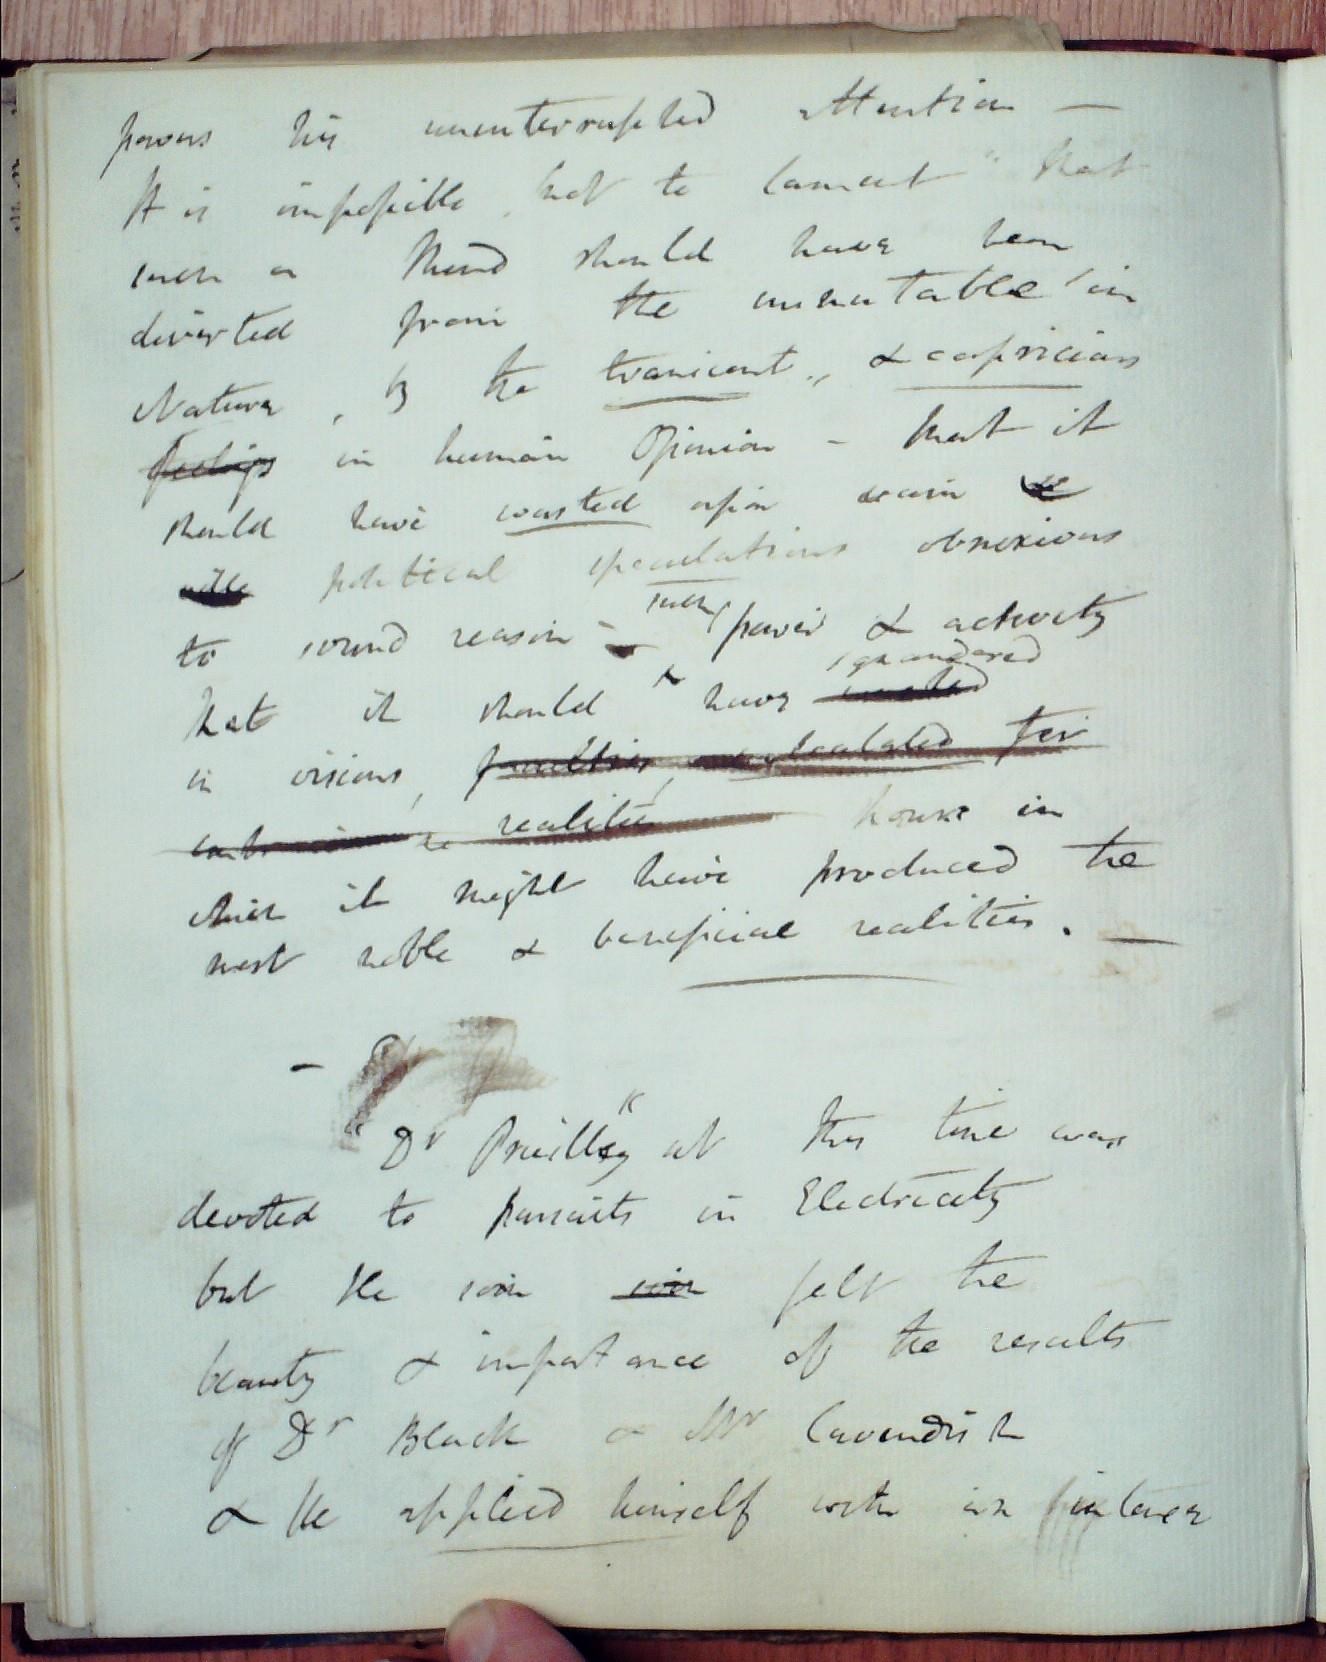 powers his uninterrupted attention —
It is impossible not to lament that
such a Mind should have been
diverted from the immutable in
Nature, by the transient, & capricious
feelings in human Opinion – that it
should have wasted upon vain
political speculations obnoxious
to sound reason – such power & activity
squandered
that it should have wasted
in visions, faculties calculated for
realities hours in
which it might have produced the
most noble & beneficial realities. —
"Dr Priestley" at this time was
devoted to pursuits in Electricity
but He soon soon felt the
beauty & importance of the results
of Dr Black & Mr Cavendish
& He applied himself with an intense